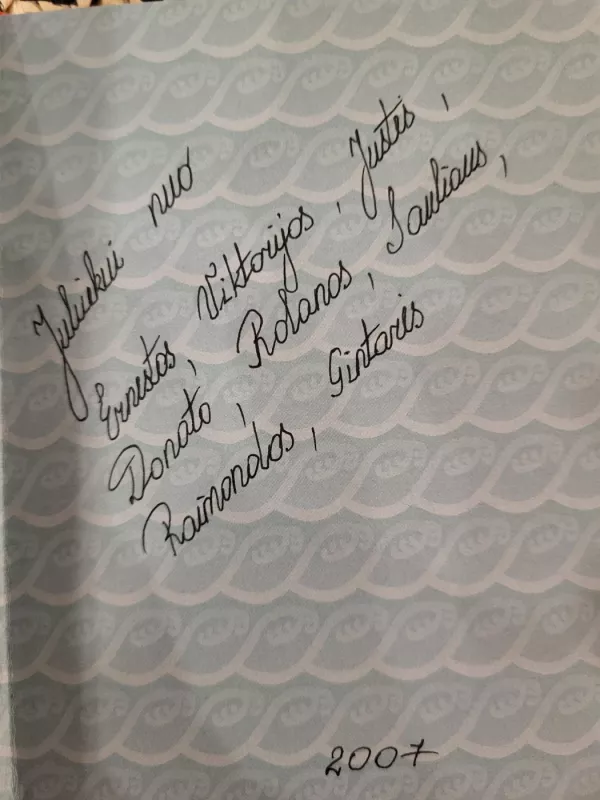 Juliukui nuo
Ernestos, Viktorijos, Justės,
Donato, Rolanos, Sauliaus,
Raimondos, Gintarės
2007